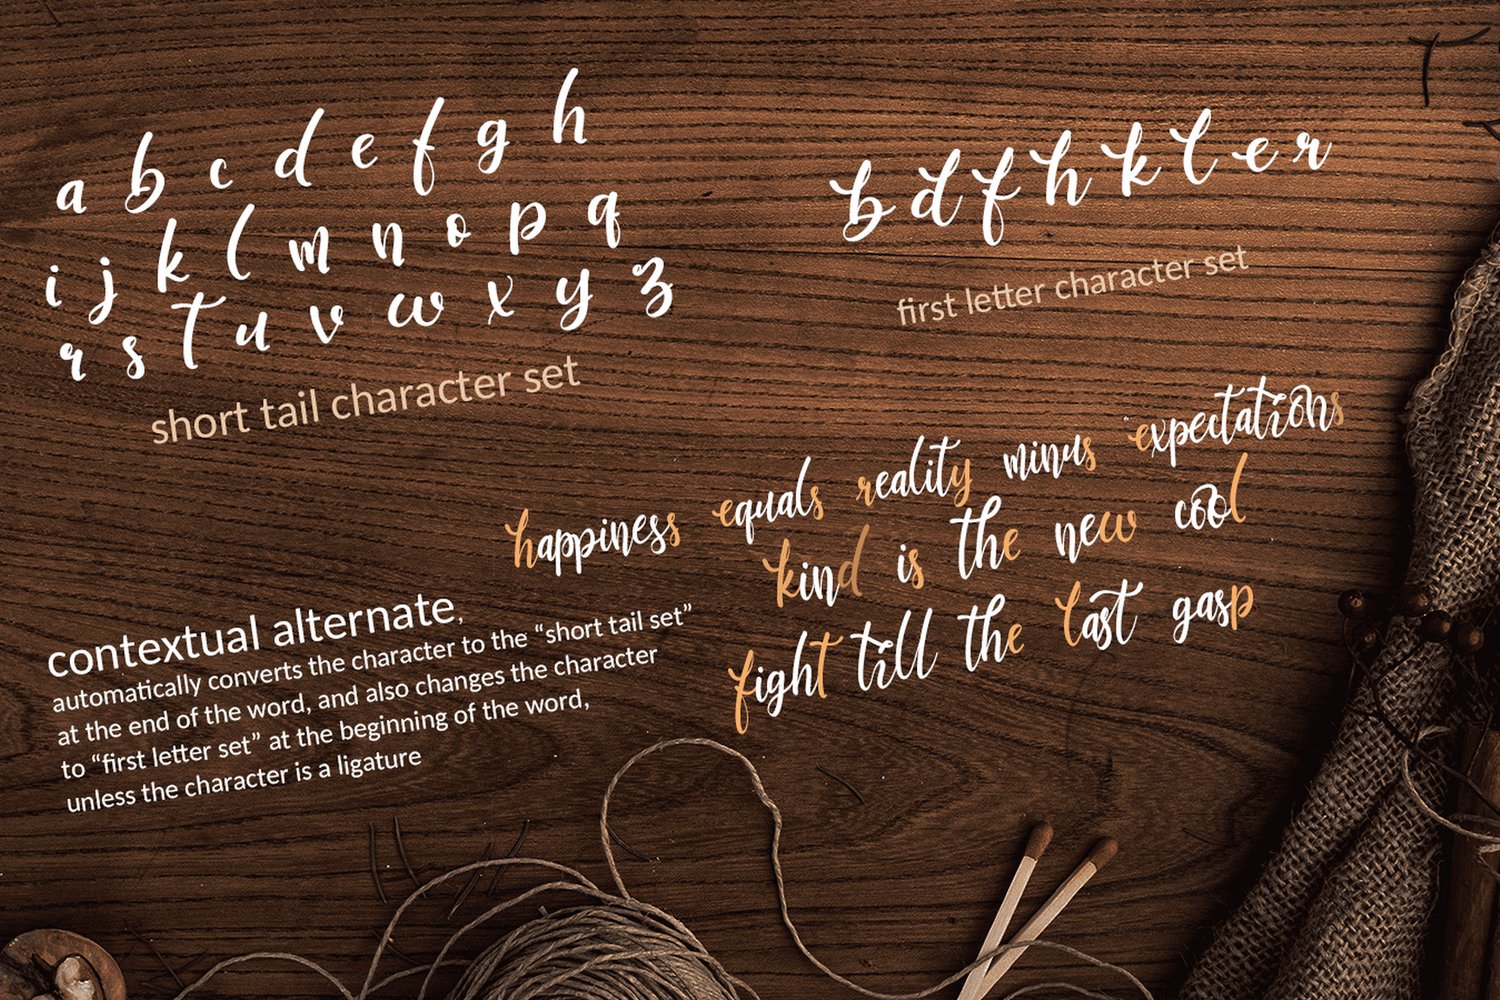 a b c d e f g h
i j k l m n o p q
r s t u v w x y z
short tail character set
b d f h k l e r
first letter character set
happiness equals reality minus expectations
kind is the new cool
fight till the last gasp
contextual alternate,
automatically converts the character to the “short tail set”
at the end of the word, and also changes the character
to “first letter set” at the beginning of the word,
unless the character is a ligature